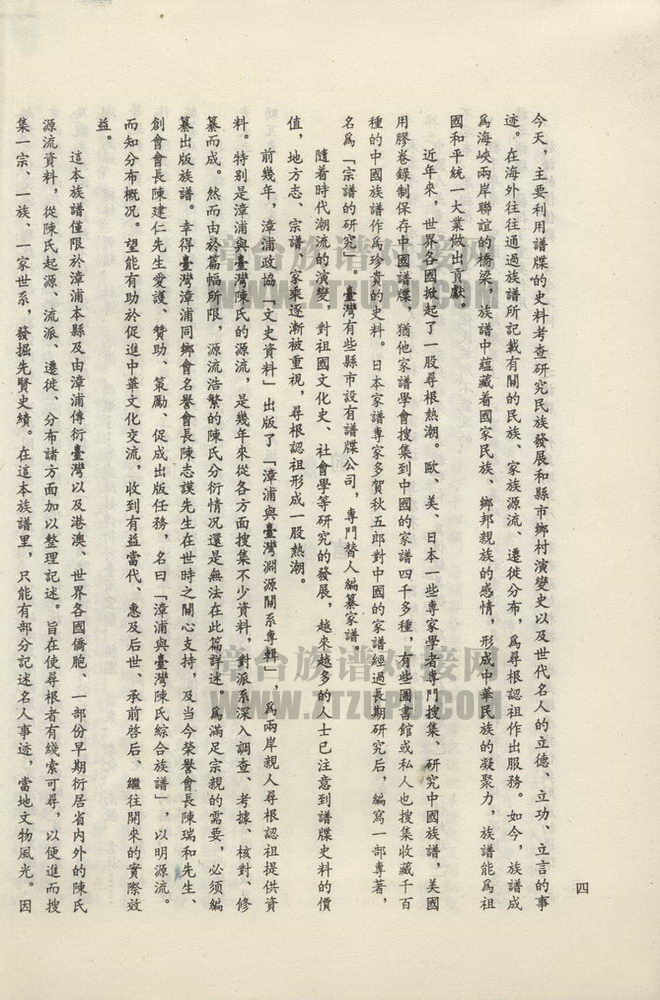 今天，主要利用譜牒的史料考查研究民族發展和縣市鄉村演變史以及世代名人的立德、立功、立言的事
迹。在海外往往通過族譜所記載有關的民族、家族源流、遷徙分布，爲尋根認祖作出服務。如今，族譜成
爲海峽兩岸聯誼的橋梁，族譜中蘊藏着國家民族、鄉邦親族的感情，形成中華民族的凝聚力，族譜能爲祖
國和平統一大業做出貢獻。
近年來，世界各國掀起了一股尋根熱潮。歐、美、日本一些專家學者專門搜集、研究中國族譜，美國
用膠卷録制保存中國譜牒，猶他家譜學會搜集到中國的家譜四千多種，有些圖書館或私人也搜集收藏千百
種的中國族譜作爲珍貴的史料。日本家譜專家多賀秋五郎對中國的家譜經過長期研究后，編寫一部專著，
名爲「宗譜的研究」。臺灣有些縣市設有譜牒公司，專門替人編纂家譜。
隨着時代潮流的演變，對祖國文化史、社會學等研究的發展，越來越多的人士已注意到譜牒史料的價
值，地方志、宗譜、家乘逐漸被重視，尋根認祖形成一股熱潮。
前幾年，漳浦政協「文史資料」出版了「漳浦與臺灣淵源關系專輯」，爲兩岸親人尋根認祖提供資
料。特别是漳浦與臺灣陳氏的源流，是幾年來從各方面搜集不少資料，對派系深入調查、考據、核對、修
纂而成。然而由於篇幅所限，源流浩繁的陳氏分衍情况還是無法在此篇詳述。爲滿足宗親的需要，必須編
纂出版族譜。幸得臺灣漳浦同鄉會名譽會長陳志謨先生在世時之關心支持，及當今榮譽會長陳瑞和先生、
創會會長陳建仁先生愛護、贊助、策勵、促成出版任務，名曰「漳浦與臺灣陳氏綜合族譜」，以明源流。
而知分布概况。望能有助於促進中華文化交流，收到有益當代、惠及后世、承前啓后、繼往開來的實際效
益。
這本族譜僅限於漳浦本縣及由漳浦傳衍臺灣以及港澳、世界各國僑胞、一部份早期衍居省内外的陳氏
源流資料，從陳氏起源、流派、遷徙、分布諸方面加以整理記述。旨在使尋根者有綫索可尋，以便進而搜
集一宗、一族、一家世系，發掘先賢史績。在這本族譜里，只能有部分記述名人事迹，當地文物風光。因
四
章台族谱对接网
WWW.ZTZUPU.COM
章台族谱对接网
WWW.ZTZUPU.COM